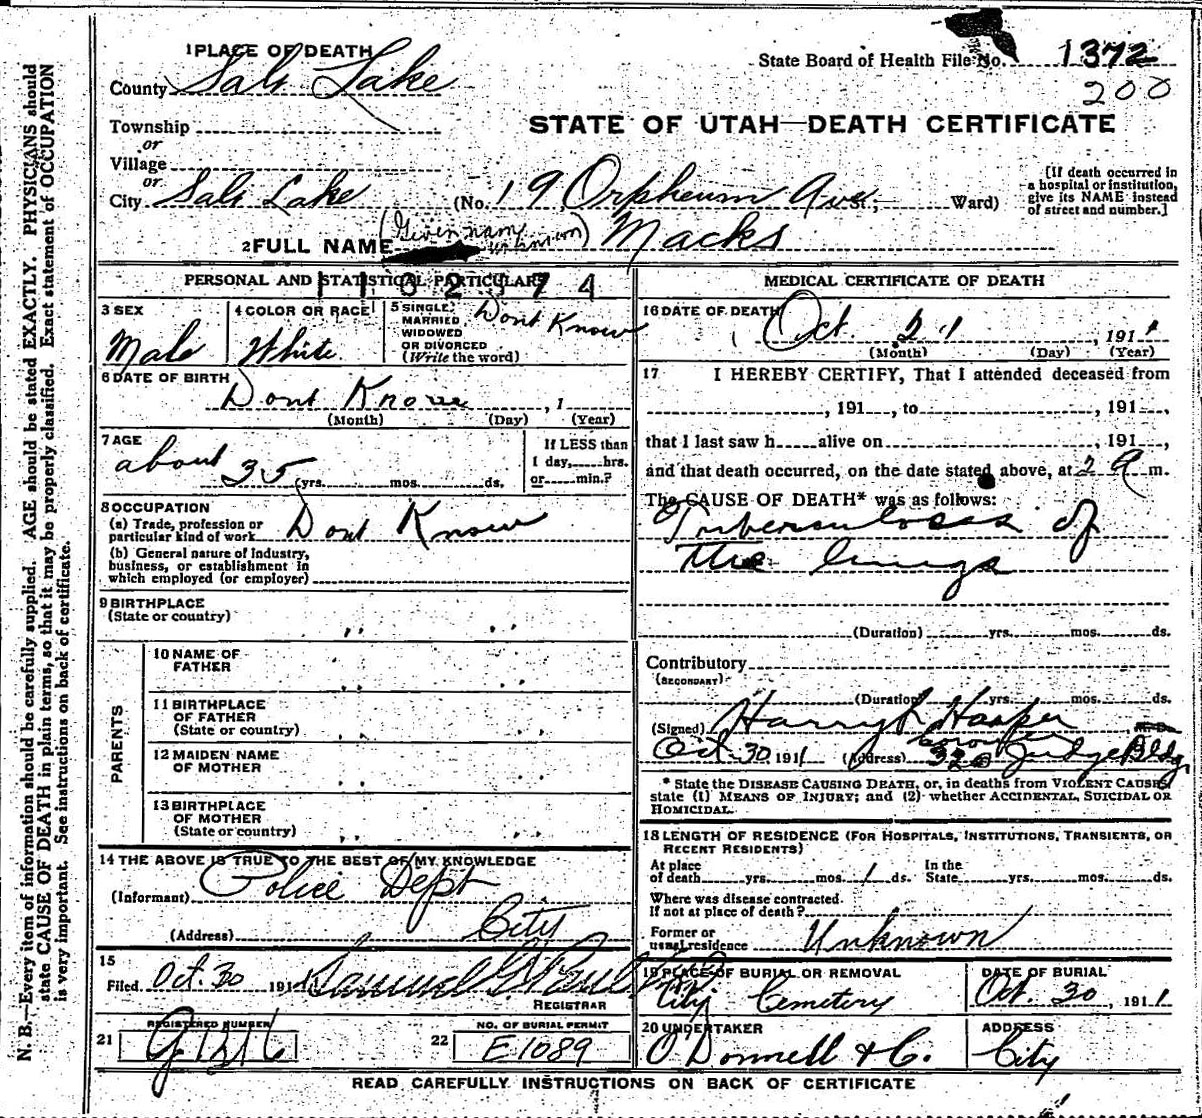 N. B.—Every item of information should be carefully supplied. AGE should be stated EXACTLY. PHYSICIANS should
state CAUSE OF DEATH in plain terms, so that it may be properly classified. Exact statement of OCCUPATION
is very important. See instructions on back of certificate.
1 PLACE OF DEATH
State Board of Health File No. 1372
200
County Salt Lake
STATE OF UTAH—DEATH CERTIFICATE
Township
or
Village
or
City Salt Lake (No. 19 Orpheum Ave St; Ward)
[If death occurred in
a hospital or institution,
give its NAME instead
of street and number.]
2 FULL NAME (Given name unknown) Macks
PERSONAL AND STATISTICAL PARTICULARS
3 SEX
Male
4 COLOR OR RACE
White
5 SINGLE,
MARRIED,
WIDOWED
OR DIVORCED
(Write the word)
Dont Know
6 DATE OF BIRTH
Dont Know , 1
(Month) (Day) (Year)
7 AGE
about 35 yrs. mos. ds.
If LESS than
1 day, hrs.
or min.?
8 OCCUPATION
(a) Trade, profession or
particular kind of work Dont Know
(b) General nature of industry,
business, or establishment in
which employed (or employer)
9 BIRTHPLACE
(State or country) " "
PARENTS
10 NAME OF
FATHER " "
11 BIRTHPLACE
OF FATHER
(State or country) " "
12 MAIDEN NAME
OF MOTHER " "
13 BIRTHPLACE
OF MOTHER
(State or country) " "
14 THE ABOVE IS TRUE TO THE BEST OF MY KNOWLEDGE
(Informant) Police Dept
(Address) City
15
Filed Oct. 30 191 Samuel G. Paul
REGISTRAR
21 REGISTERED NUMBER
22 NO. OF BURIAL PERMIT
E1089
MEDICAL CERTIFICATE OF DEATH
16 DATE OF DEATH
Oct. 21 , 1911
(Month) (Day) (Year)
17 I HEREBY CERTIFY, That I attended deceased from
, 191 , to , 191 ,
that I last saw h alive on , 191 ,
and that death occurred, on the date stated above, at 2 a m.
The CAUSE OF DEATH* was as follows:
Tuberculosis of
the lungs
(Duration) yrs. mos. ds.
Contributory
(SECONDARY)
(Duration) yrs. mos. ds.
(Signed) Harry Harper
coroner
Oct. 30 1911 (Address) 320 Judge Bldg
* State the DISEASE CAUSING DEATH, or, in deaths from VIOLENT CAUSES,
state (1) MEANS OF INJURY; and (2) whether ACCIDENTAL, SUICIDAL OR
HOMICIDAL.
18 LENGTH OF RESIDENCE (FOR HOSPITALS, INSTITUTIONS, TRANSIENTS, OR
RECENT RESIDENTS)
At place
of death yrs. mos. 1 ds.
In the
State yrs. mos. ds.
Where was disease contracted.
If not at place of death?
Former or
usual residence Unknown
19 PLACE OF BURIAL OR REMOVAL
City Cemetery
DATE OF BURIAL
Oct. 30 , 1911
20 UNDERTAKER
O'Donnell & C.
ADDRESS
City
READ CAREFULLY INSTRUCTIONS ON BACK OF CERTIFICATE